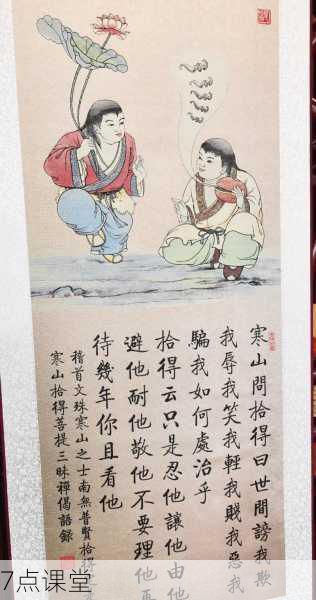 寒山問拾得曰世間謗我欺
我辱我笑我輕我賤我惡我
騙我如何處治乎
拾得云只是忍他讓他由他
避他耐他敬他不要理他再
待幾年你且看他
稽首文殊寒山之士南無普賢拾得
寒山拾得菩提三昧禪偈語錄
7点课堂